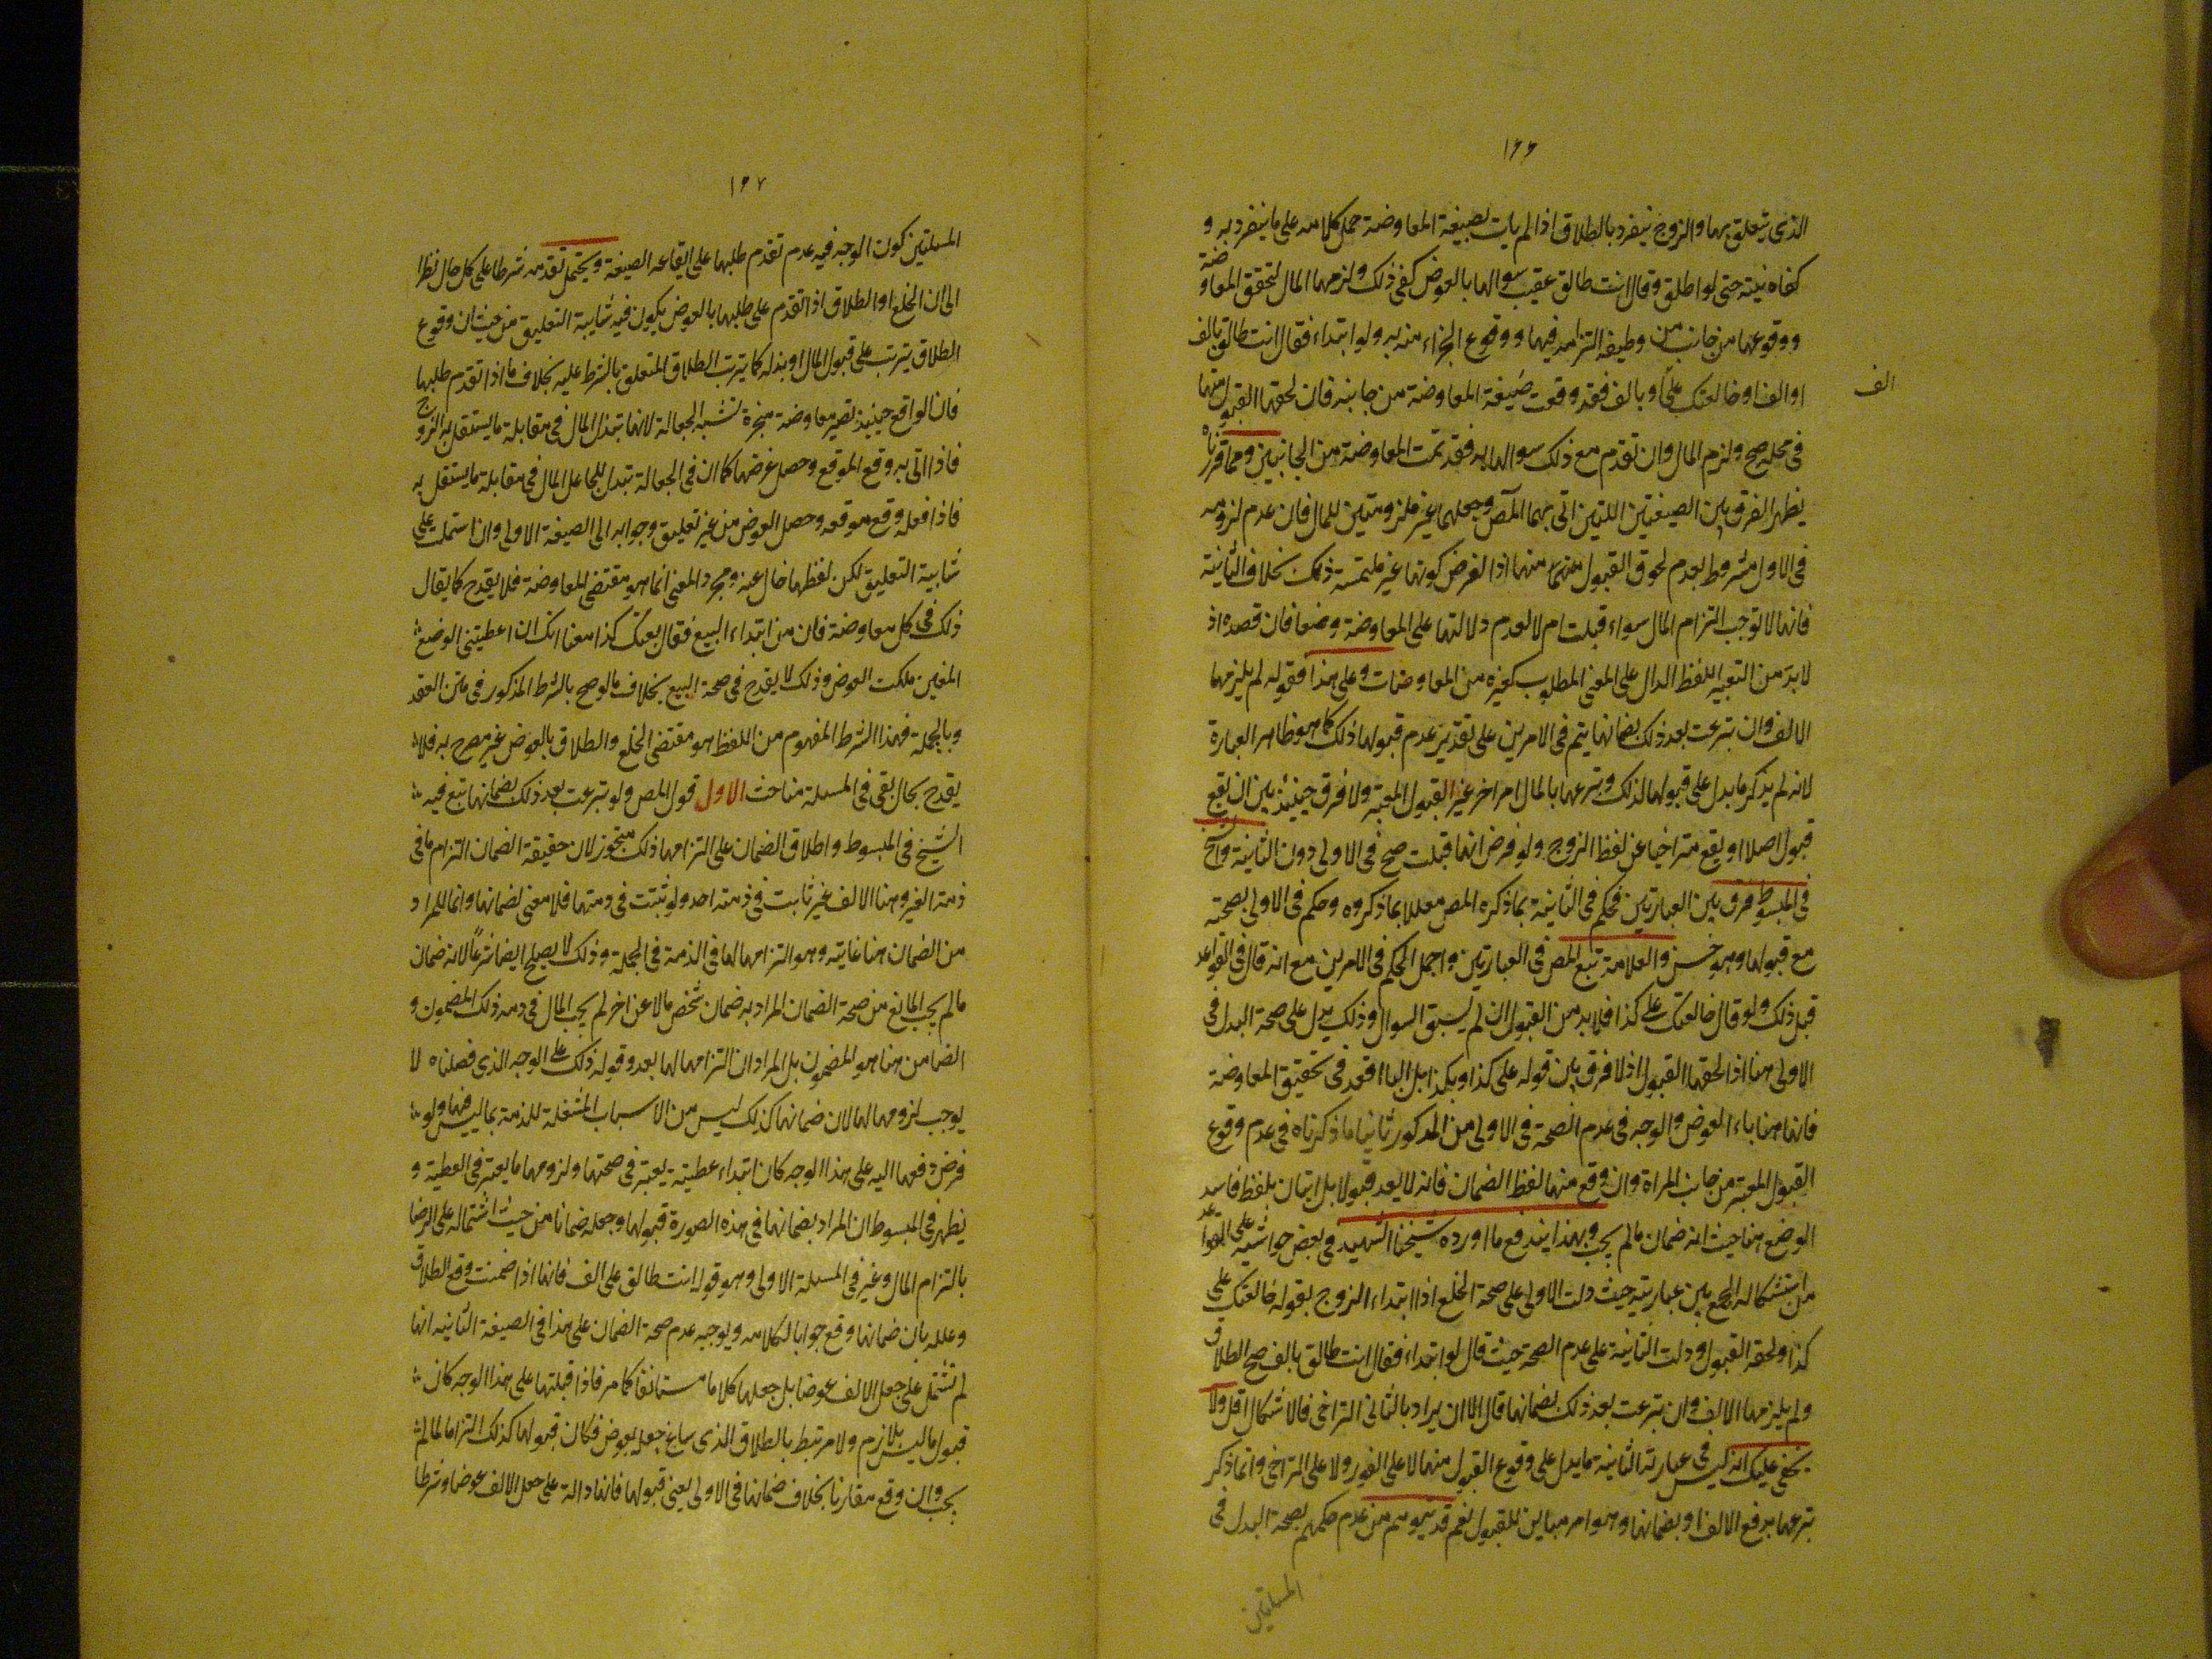 ١٦٦
الذى يتعلق بها والزوج ينفرد بالطلاق اذا لم يات بصيغة المعاوضة حمل كلامه على ما ينفرد به و
كفاه نيته حتى لو اطلق وقال انت طالق عقيب سوالها بالعوض كفى ذلك ولزمها المال لتحقق المعاوضة
ووقوعها من جانب من وظيفه التزامه فيها ووقوع الجزاء منه به ولو ابتداء فقال انت طالق بالف
او الف او خالعتك على او بالف فقد وقعت صيغة المعاوضة من جانبه فان لحقها القبول منها
الف
فى محله صح ولزم المال وان تقدم مع ذلك سوالها به فقد تمت المعاوضة من الجانبين ومما قررناه
يظهر الفرق بين الصيغتين اللتين اتى بهما المص وجعلهما غير ملزومتين للمال فان عدم لزومه
فى الاول مشروط بعدم لحوق القبول منها اذا لفرض كونها غير ملتمسة ذلك بخلاف الثانية
فانها لا توجب التزام المال سواء قبلت ام لا لعدم دلالتها على المعاوضة وضعا فان قصده اذ
لا بد من التعبير اللفظ الدال على المعنى المطلوب كغيره من المعاوضات وعلى هذا فقوله لم يلزمها
الالف وان تبرعت بعد ذلك بضمانها يتم فى الامرين على تقدير عدم قبولها ذلك كما هو ظاهر العبارة
لانه لم يذكر ما يدل على قبولها لذلك وتبرعها بالمال امر اخر غير القبول المعتبر ولا فرق حينئذ بين ان لا يقع
قبول اصلا او يقع متراخيا عن لفظ الزوج ولو فرض انها قبلت صح فى الاولى دون الثانية والشيخ
فى المبسوط فرق بين العبارتين فحكم فى الثانية بما ذكره المص معللا بما ذكروه وحكم فى الاولى بصحته
مع قبولها وهو حسن والعلامة تبع المص فى العبارتين واجمل الحكم فى الامرين مع انه قال فى القواعد
قبل ذلك ولو قال خالعتك على كذا فلا بد من القبول ان لم يسبق السوال وذلك يدل على صحة البدل فى
الاولى هنا اذا لحقها القبول اذ لا فرق بين قوله على كذا وبكذا بل الباا قعد فى تحقيق المعاوضة
فانها هنا باء العوض والوجه فى عدم الصحة فى الاولى من المذكور ثانيا ما ذكرناه فى عدم وقوع
القبول المعتبر من جانب المراة وان وقع منها لفظ الضمان فانه لا يعد قبولا بل اتيان بلفظ فاسد
الوضع هنا حيث انه ضمان ما لم يجب وبهذا يندفع ما اورده شيخنا الشهيد فى بعض حواشيه على القواعد
من استشكاله الجمع بين عبارتيه حيث دلت الاولى على صحة الخلع اذا ابتداء الزوج بقوله خالعتك على
كذا ولحقه القبول ودلت الثانية على عدم الصحة حيث قال لو ابتداء فقال انت طالق بالف صح الطلاق
ولم يلزمها الالف وان تبرعت بعد ذلك بضمانها قال الا ان يراد بالثانى التراخى فالاشكال اقل ولا
يخفى عليك انه ليس فى عبارته الثانية ما يدل على وقوع القبول منها لا على الفور ولا على التراخى وانما ذكر
تبرعها بدفع الالف او بضمانها وهو امر مباين للقبول نعم قد يتوهم من عدم حكمهم بصحة البدل فى
المسئلتين
١٦٧
المسئلتين كون الوجه فيه عدم تقدم طلبها على ايقاعه الصيغة ويحتمل تقدمه شرطا على كل حال نظرا
الى ان الخلع او الطلاق اذا تقدم على طلبها بالعوض يكون فيه شايبة التعليق من حيث ان وقوع
الطلاق يترتب على قبول المال او بذله كما يترتب الطلاق المتعلق بالشرط عليه بخلاف ما اذا تقدم طلبها
فان الواقع حينئذ تصير معاوضة منجزة تشبه الجعالة لانها تبذل المال فى مقابلة ما يستقل به الزوج
فاذا اتى به وقع الموقع وحصل غرضها كما ان فى الجعالة تبذل للجاعل المال فى مقابلة ما يستقل به
فاذا فعله وقع موقعه وحصل العوض من غير تعليق وجوابه الى الصيغة الاولى وان اشتملت على
شايبة التعليق لكن لفظها خال عنه ومجرد المعنى انما هو مقتضى المعاوضة فلا يقدح كما يقال
ذلك فى كل معاوضة فان من ابتداء البيع فقال بعتك كذا معناه انك ان اعطيتنى العوض
المعين ملكت العوض وذلك لا يقدح فى صحة البيع بخلاف ما لو صح بالشرط المذكور فى متن العقد
وبالجملة فهذا الشرط المفهوم من اللفظ هو مقتضى الخلع والطلاق بالعوض غير مصرح به فلا
يقدح بحال بقى فى المسئلة مباحث الاول قول المص ولو تبرعت بعد ذلك بضمانها تبع فيه
الشيخ فى المبسوط واطلاق الضمان على التزامها ذلك متجوز لان حقيقة الضمان التزام ما فى
ذمة الغير وهنا الالف غير ثابت فى ذمة احد ولو ثبتت فى ذمتها فلا معنى لضمانها وانما المراد
من الضمان هنا غايته وهو التزامها لها فى الذمة فى الجملة وذلك لا يصلح ايضا شرعا لانه ضمان
ما لم يجب المانع من صحة الضمان المراد به ضمان شخص مالا عن اخر لم يجب المال فى ذمه ذلك المضمون و
الضامن هنا هو المضمون بل المراد ان التزامها لها بعد وقوله ذلك على الوجه الذى فصلناه لا
يوجب لزومها لها لان ضمانها كذلك ليس من الاسباب المشغلة للذمة بما ليس فيها ولو
فرض دفعها اليه على هذا الوجه كان ابتداء عطية يعتبر فى صحتها ولزومها ما يعتبر فى العطية و
يظهر فى المبسوط ان المراد بضمانها فى هذه الصورة قبولها وجعله ضمانا من حيث اشتماله على الرضا
بالتزام المال وغير فى المسئلة الاولى وهو قوله انت طالق على الف فانها اذا ضمنت وقع الطلاق
وعلله بان ضمانها وقع جوابا لكلامه ويوجبه عدم صحة الضمان على هذا فى الصيغة الثانيه انها
لم تشتمل على جعل الالف عوضا بل جعلها كلاما مستانفا كما مر فاذا قبلتها على هذا الوجه كان
قبول ما ليس بلازم ولا مرتبط بالطلاق الذى ساغ جعله بعوض فكان قبولها كذلك التزاما لما لم
يجب وان وقع مقارنا بخلاف ضمانها فى الاولى يعنى قبولها فانها دالة على جعل الالف عوضا وشرطا